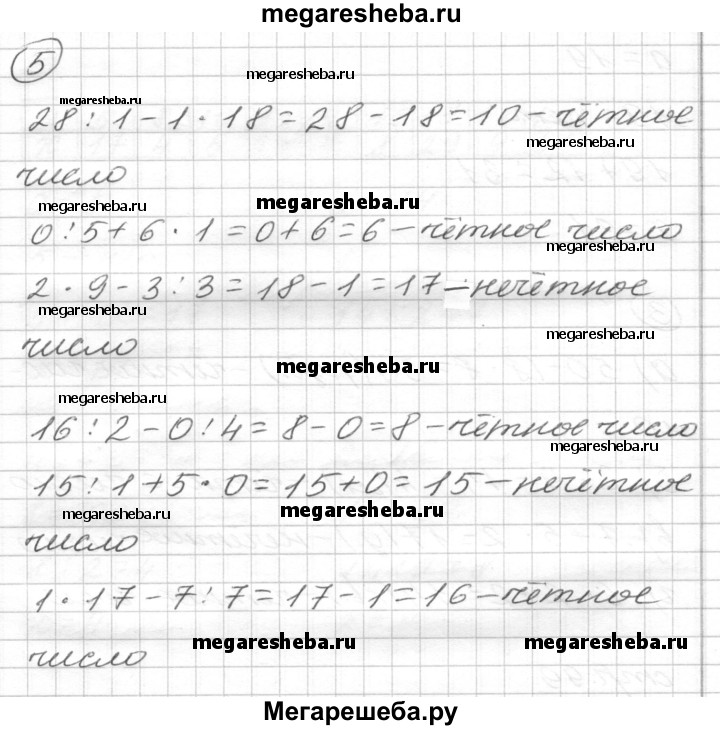 megaresheba.ru
5
megaresheba.ru
megaresheba.ru
28 : 1 - 1 · 18 = 28 - 18 = 10 - чётное
megaresheba.ru
число
megaresheba.ru
megaresheba.ru
0 : 5 + 6 · 1 = 0 + 6 = 6 - чётное число
megaresheba.ru
2 · 9 - 3 : 3 = 18 - 1 = 17 - нечётное
megaresheba.ru
megaresheba.ru
число
megaresheba.ru
megaresheba.ru
16 : 2 - 0 : 4 = 8 - 0 = 8 - чётное число
megaresheba.ru
15 : 1 + 5 · 0 = 15 + 0 = 15 - нечётное
megaresheba.ru
megaresheba.ru
число
1 · 17 - 7 : 7 = 17 - 1 = 16 - чётное
megaresheba.ru
megaresheba.ru
число
Мегарешеба.ру